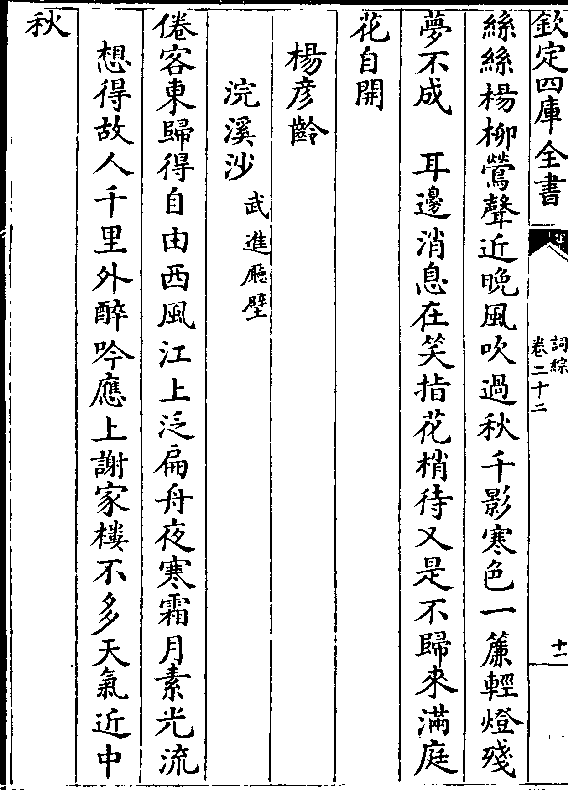 欽定四庫全書
詞綜
卷二十二
十一
絲絲楊柳鶯聲近晚風吹過秋千影寒色一簾輕燈殘
夢不成　耳邊消息在笑指花梢待又是不歸來滿庭
花自開
楊彦齡
浣溪沙武進廳壁
倦客東歸得自由西風江上泛扁舟夜寒霜月素光流
想得故人千里外醉吟應上謝家樓不多天氣近中
秋